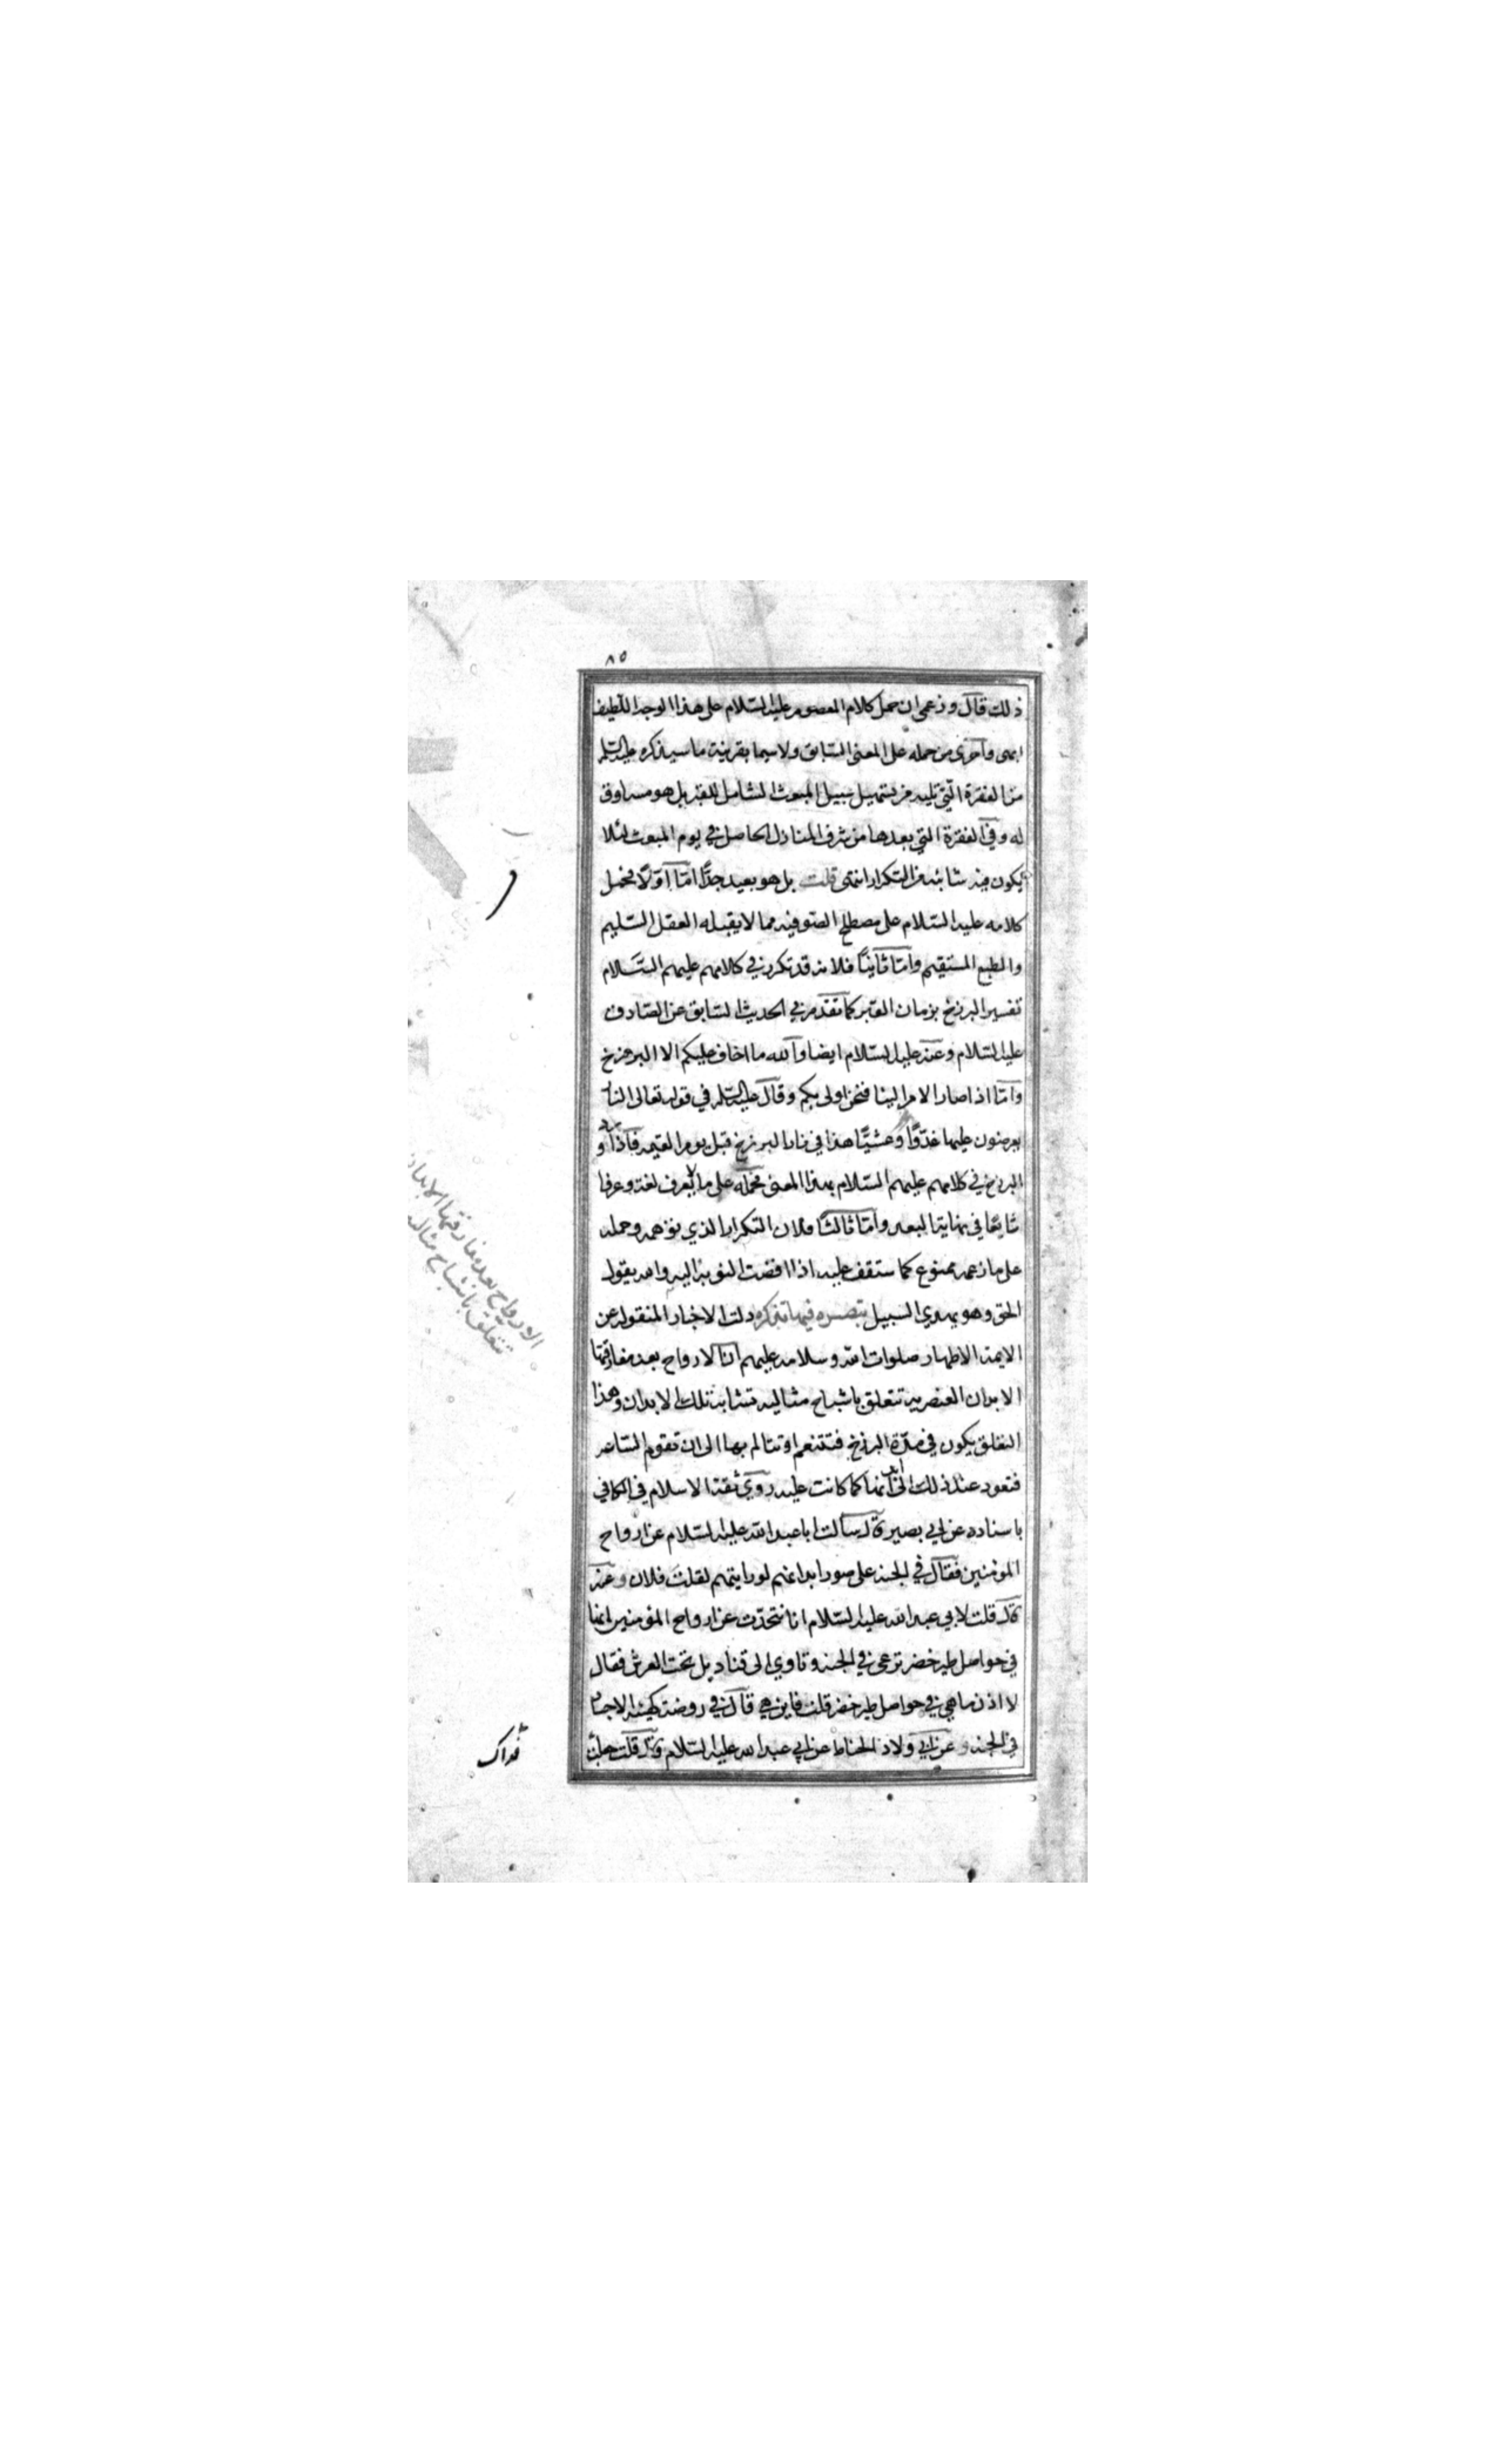 ٨٥
ذلك قال وزعمى ان حمل كلام المعصوم عليه السلام على هذا الوجه اللطيف
ابهى واحرى من حمله على المعنى السابق ولاسيما بقرينة ما سيذكره عليه السلم
من الفقرة التي تليه من تسهيل سبيل المبعث الشامل للقبر بل هو مساوق
له وفي الفقرة التي بعدها من شرف المنازل الحاصل في يوم المبعث لئلا
يكون فيه شائبة من التكرار انتهى قلت بل هو بعيد جدًا امّا اوّلًا فحمل
كلامه عليه السلام على مصطلح الصوفيه مما لا يقبله العقل السليم
والطبع المستقيم وامّا ثانيًا فلانه قد تكرر في كلامهم عليهم السَّلام
تفسير البرزخ بزمان القبر كما تقدم في الحديث السابق عن الصّادق
عليه السلام وعنه عليه السّلام ايضا والله ما اخاف عليكم الا البرزخ
وامّا اذا صار الامر الينا فنحن اولى بكم وقال عليه السلم في قوله تعالى النار
يعرضون عليها غدوًّا وعشيًّا هذا في نار البرزخ قبل يوم القيمه فاذا ورد
البرزخ في كلامهم عليهم السّلام بهذا المعنى فحمله على ما لا يعرف لغة وعرفا
شايعًا في نهاية البعد وامّا ثالثًا فلان التكرار الذي توهمه وحمله
على ما زعمه ممنوع كما ستقف عليه اذا افضت النوبة اليه والله يقول
الحق وهو يهدي السبيل تبصره فيها تذكره دلت الاخبار المنقوله عن
الايمة الاطهار صلوات الله وسلامه عليهم ان الارواح بعد مفارقتها
الابدان العنصريه تتعلق باشباح مثاليه تشابه تلك الابدان وهذا
التعلق يكون في مدّة البرزخ فتتنعم او تتالم بها الى ان تقوم الساعه
فتعود عند ذلك الى ابدانها كما كانت عليه روى ثقة الاسلام في الكافي
باسناده عن ابي بصير قال سالت ابا عبد الله عليه السلام عن ارواح
المؤمنين فقال في الجنة على صور ابدانهم لو رايتهم لقلت فلان وعنه
قال قلت لابي عبد الله عليه السّلام انا نتحدّث عن ارواح المؤمنين انها
في حواصل طير خضر ترعى في الجنه وتاوي الى قناديل تحت العرش فقال
لا اذن ما هي في حواصل طير خضر قلت فاين هي قال في روضة كهيئة الاجساد
في الجنه وعن ابي ولاد الحناط عن ابي عبد الله عليه السلام قال قلت جعلت
فداك
الارواح بعد مفارقتها الابدان
تتعلق باشباح مثاليه